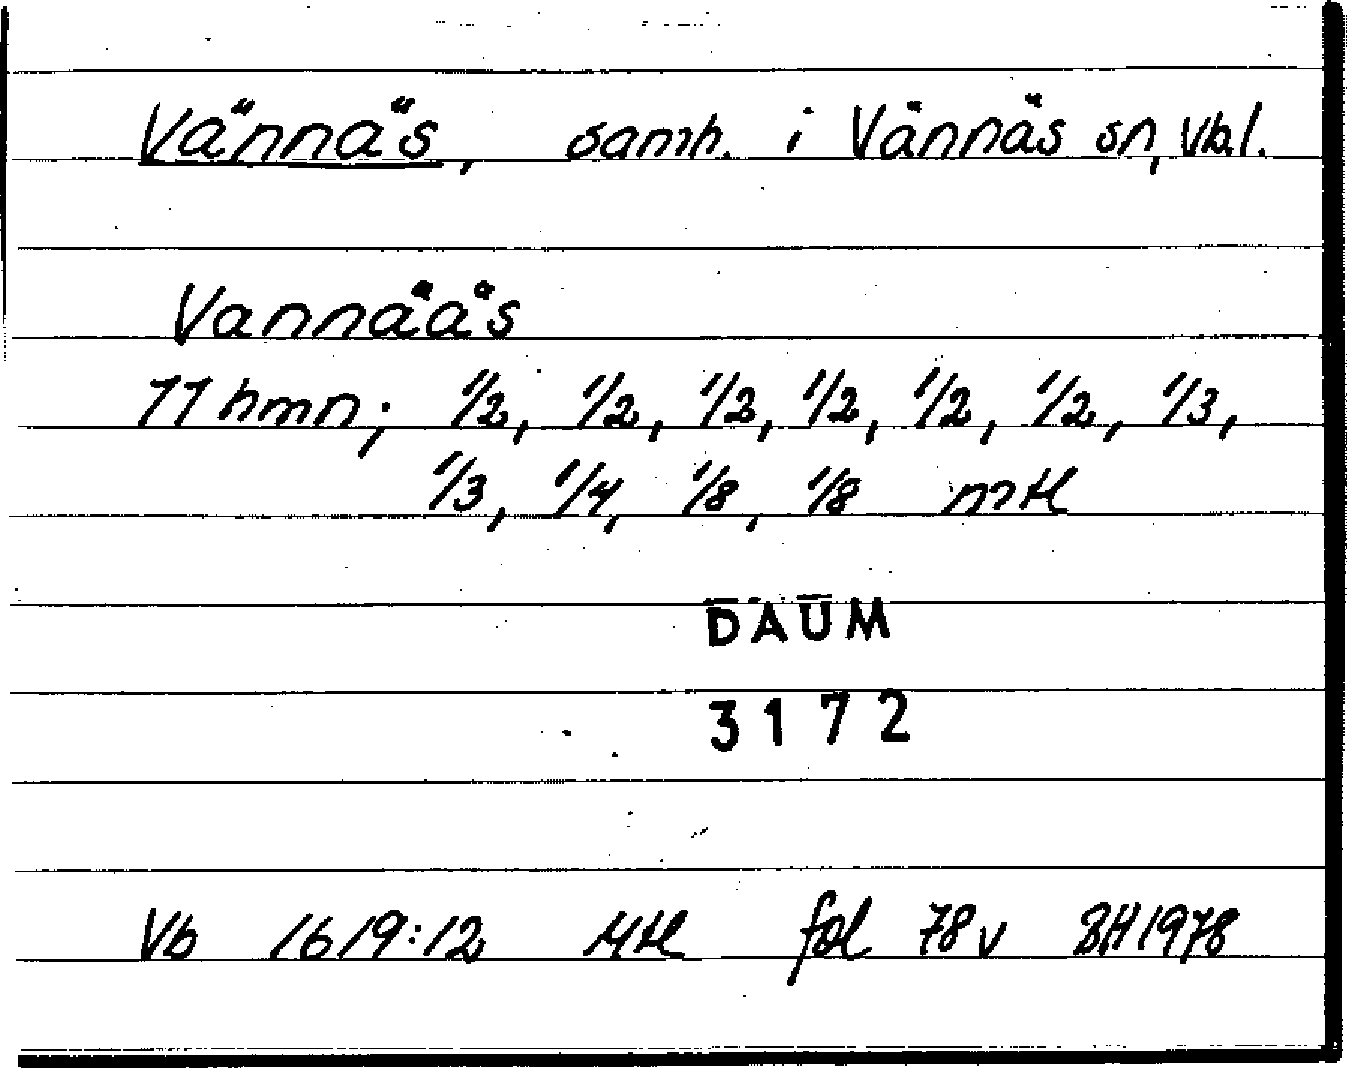 Vännäs, samh. i Vännäs sn, Vb.l.
Vannääs
11 hmn; 1/2, 1/2, 1/2, 1/2, 1/2, 1/2, 1/3,
1/3, 1/4, 1/8, 1/8 mtl
DAUM
3172
Vb 1619:12 Mtl fol 78 v BH 1978